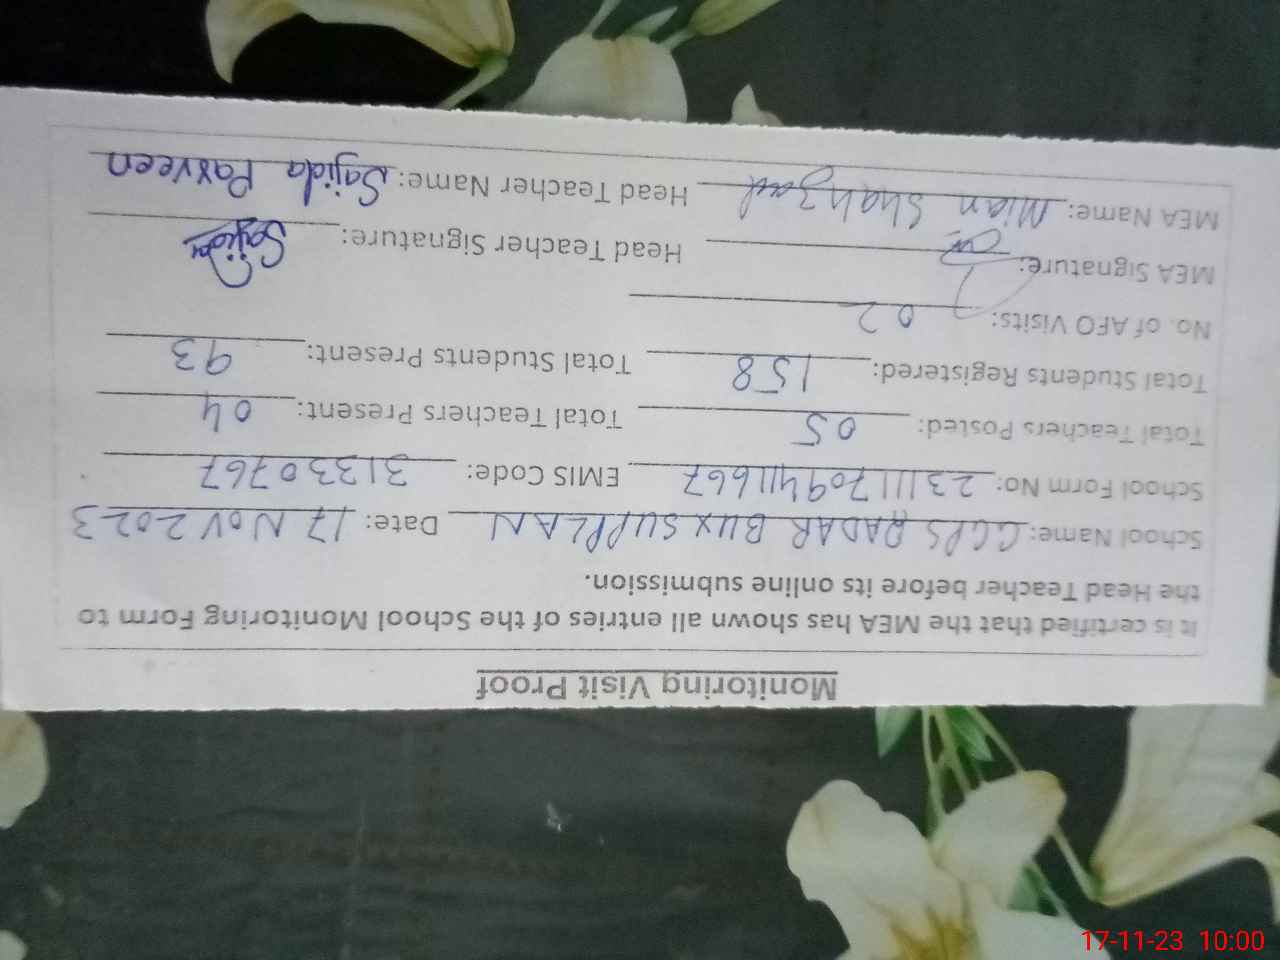 Monitoring Visit Proof
It is certified that the MEA has shown all entries of the School Monitoring Form to
the Head Teacher before its online submission.
School Name: GGPS QADAR BUX SUPLAN Date: 17 NOV 2023
School Form No: 23111170941667 EMIS Code: 31330767
Total Teachers Posted: 05 Total Teachers Present: 04
Total Students Registered: 158 Total Students Present: 93
No. of AFO Visits: 02
MEA Signature: Head Teacher Signature: Sajida
MEA Name: Mian Shahzad Head Teacher Name: Sajida Parveen
17-11-23 10:00